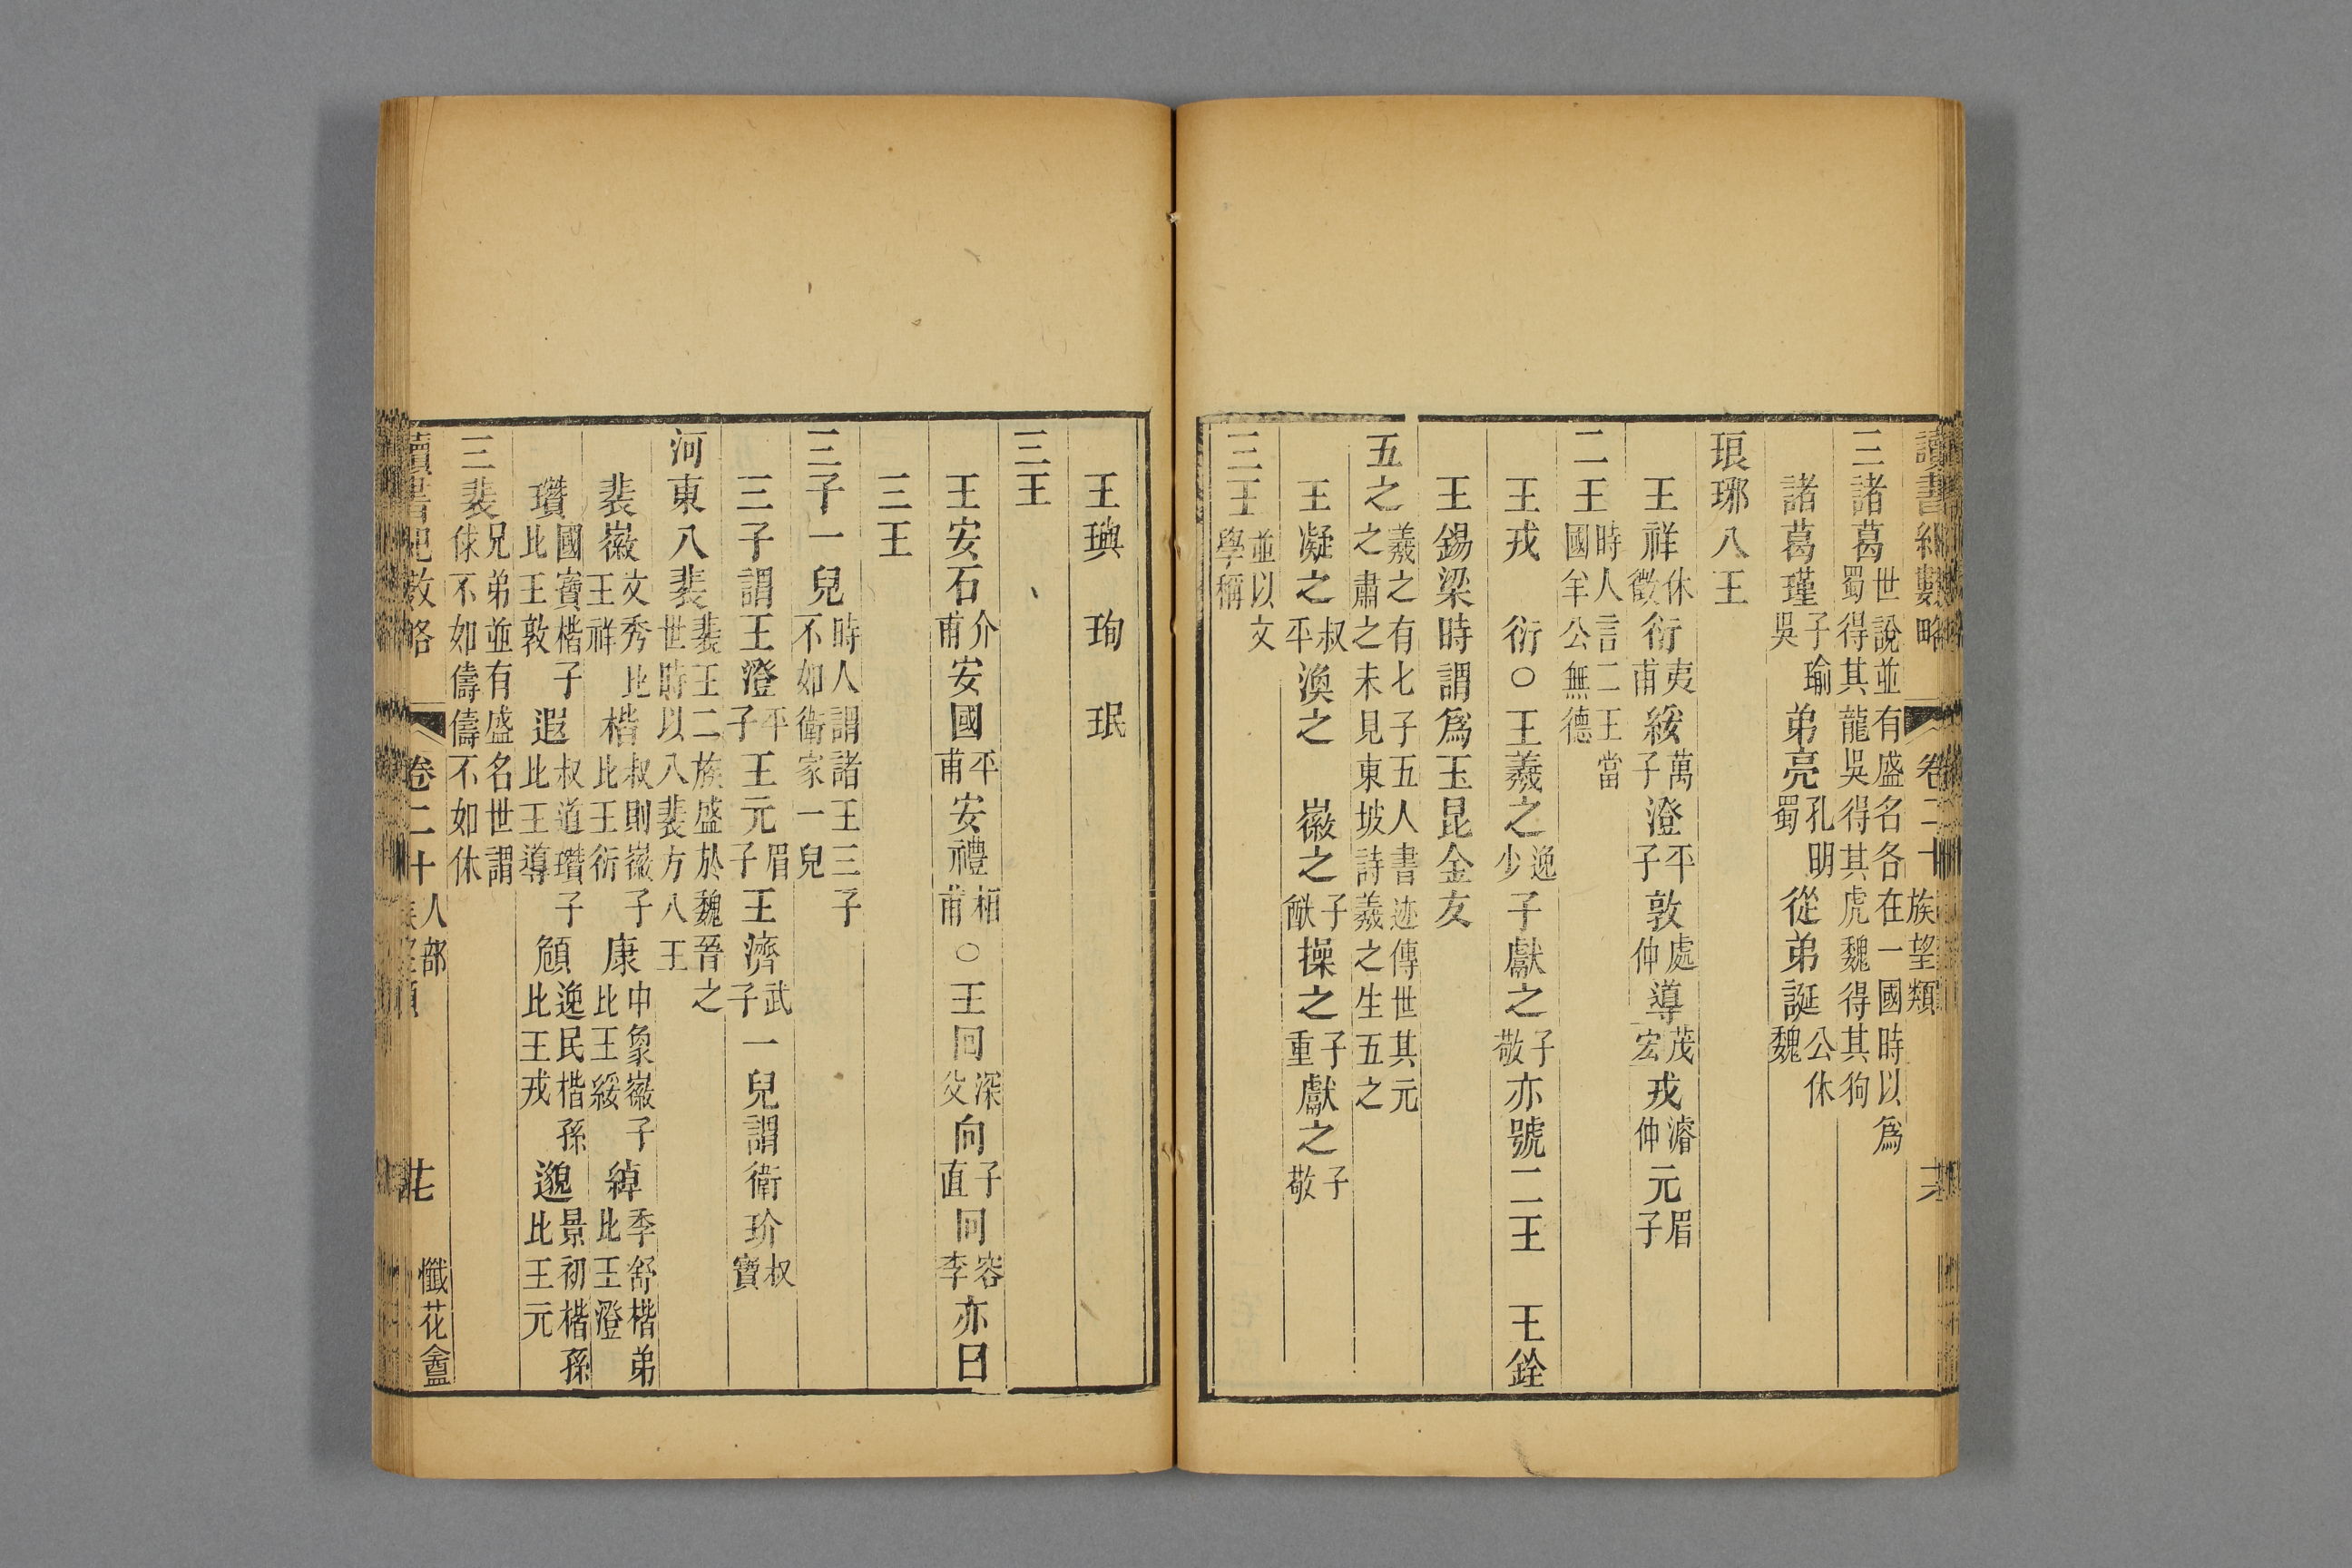 讀書紀數略 卷二十 族望類
三諸葛世說並有盛名各在一國時以爲蜀得其龍吳得其虎魏得其狗
諸葛瑾子瑜吳 弟亮孔明蜀 從弟誕公休魏
琅琊八王
王祥休徵 衍夷甫 綏萬子 澄平子 敦處仲 導茂宏 戎濬仲 元眉子
二王時人言二王當國羊公無德
王戎 衍○王羲之逸少 子獻之子敬 亦號二王 王銓
王錫梁時謂爲玉昆金友
五之羲之有七子五人書迹傳世其元之肅之未見東坡詩羲之生五之
王凝之叔平 渙之 徽之子猷 操之子重 獻之子敬
三王並以文學稱
王璵 珣 珉
三王
王安石介甫 安國平甫 安禮和甫 ○王回深父 向子直 冏容季 亦曰
三王
三子一兒時人謂諸王三子不如衛家一兒
三子謂王澄平子 王元眉子 王濟武子 一兒謂衛玠叔寶
河東八裴裴王二族盛於魏晉之世時以八裴方八王
裴徽文秀比王祥 楷叔則徽子比王衍 康中象徽子比王綏 綽季舒楷弟比王澄
瓚國寶楷子比王敦 遐叔道瓚子比王導 頠逸民楷孫比王戎 邈景初楷孫比王元
三裴兄弟並有盛名世謂俅不如儔儔不如休
讀書紀數略 卷二十 人部 懺花盦